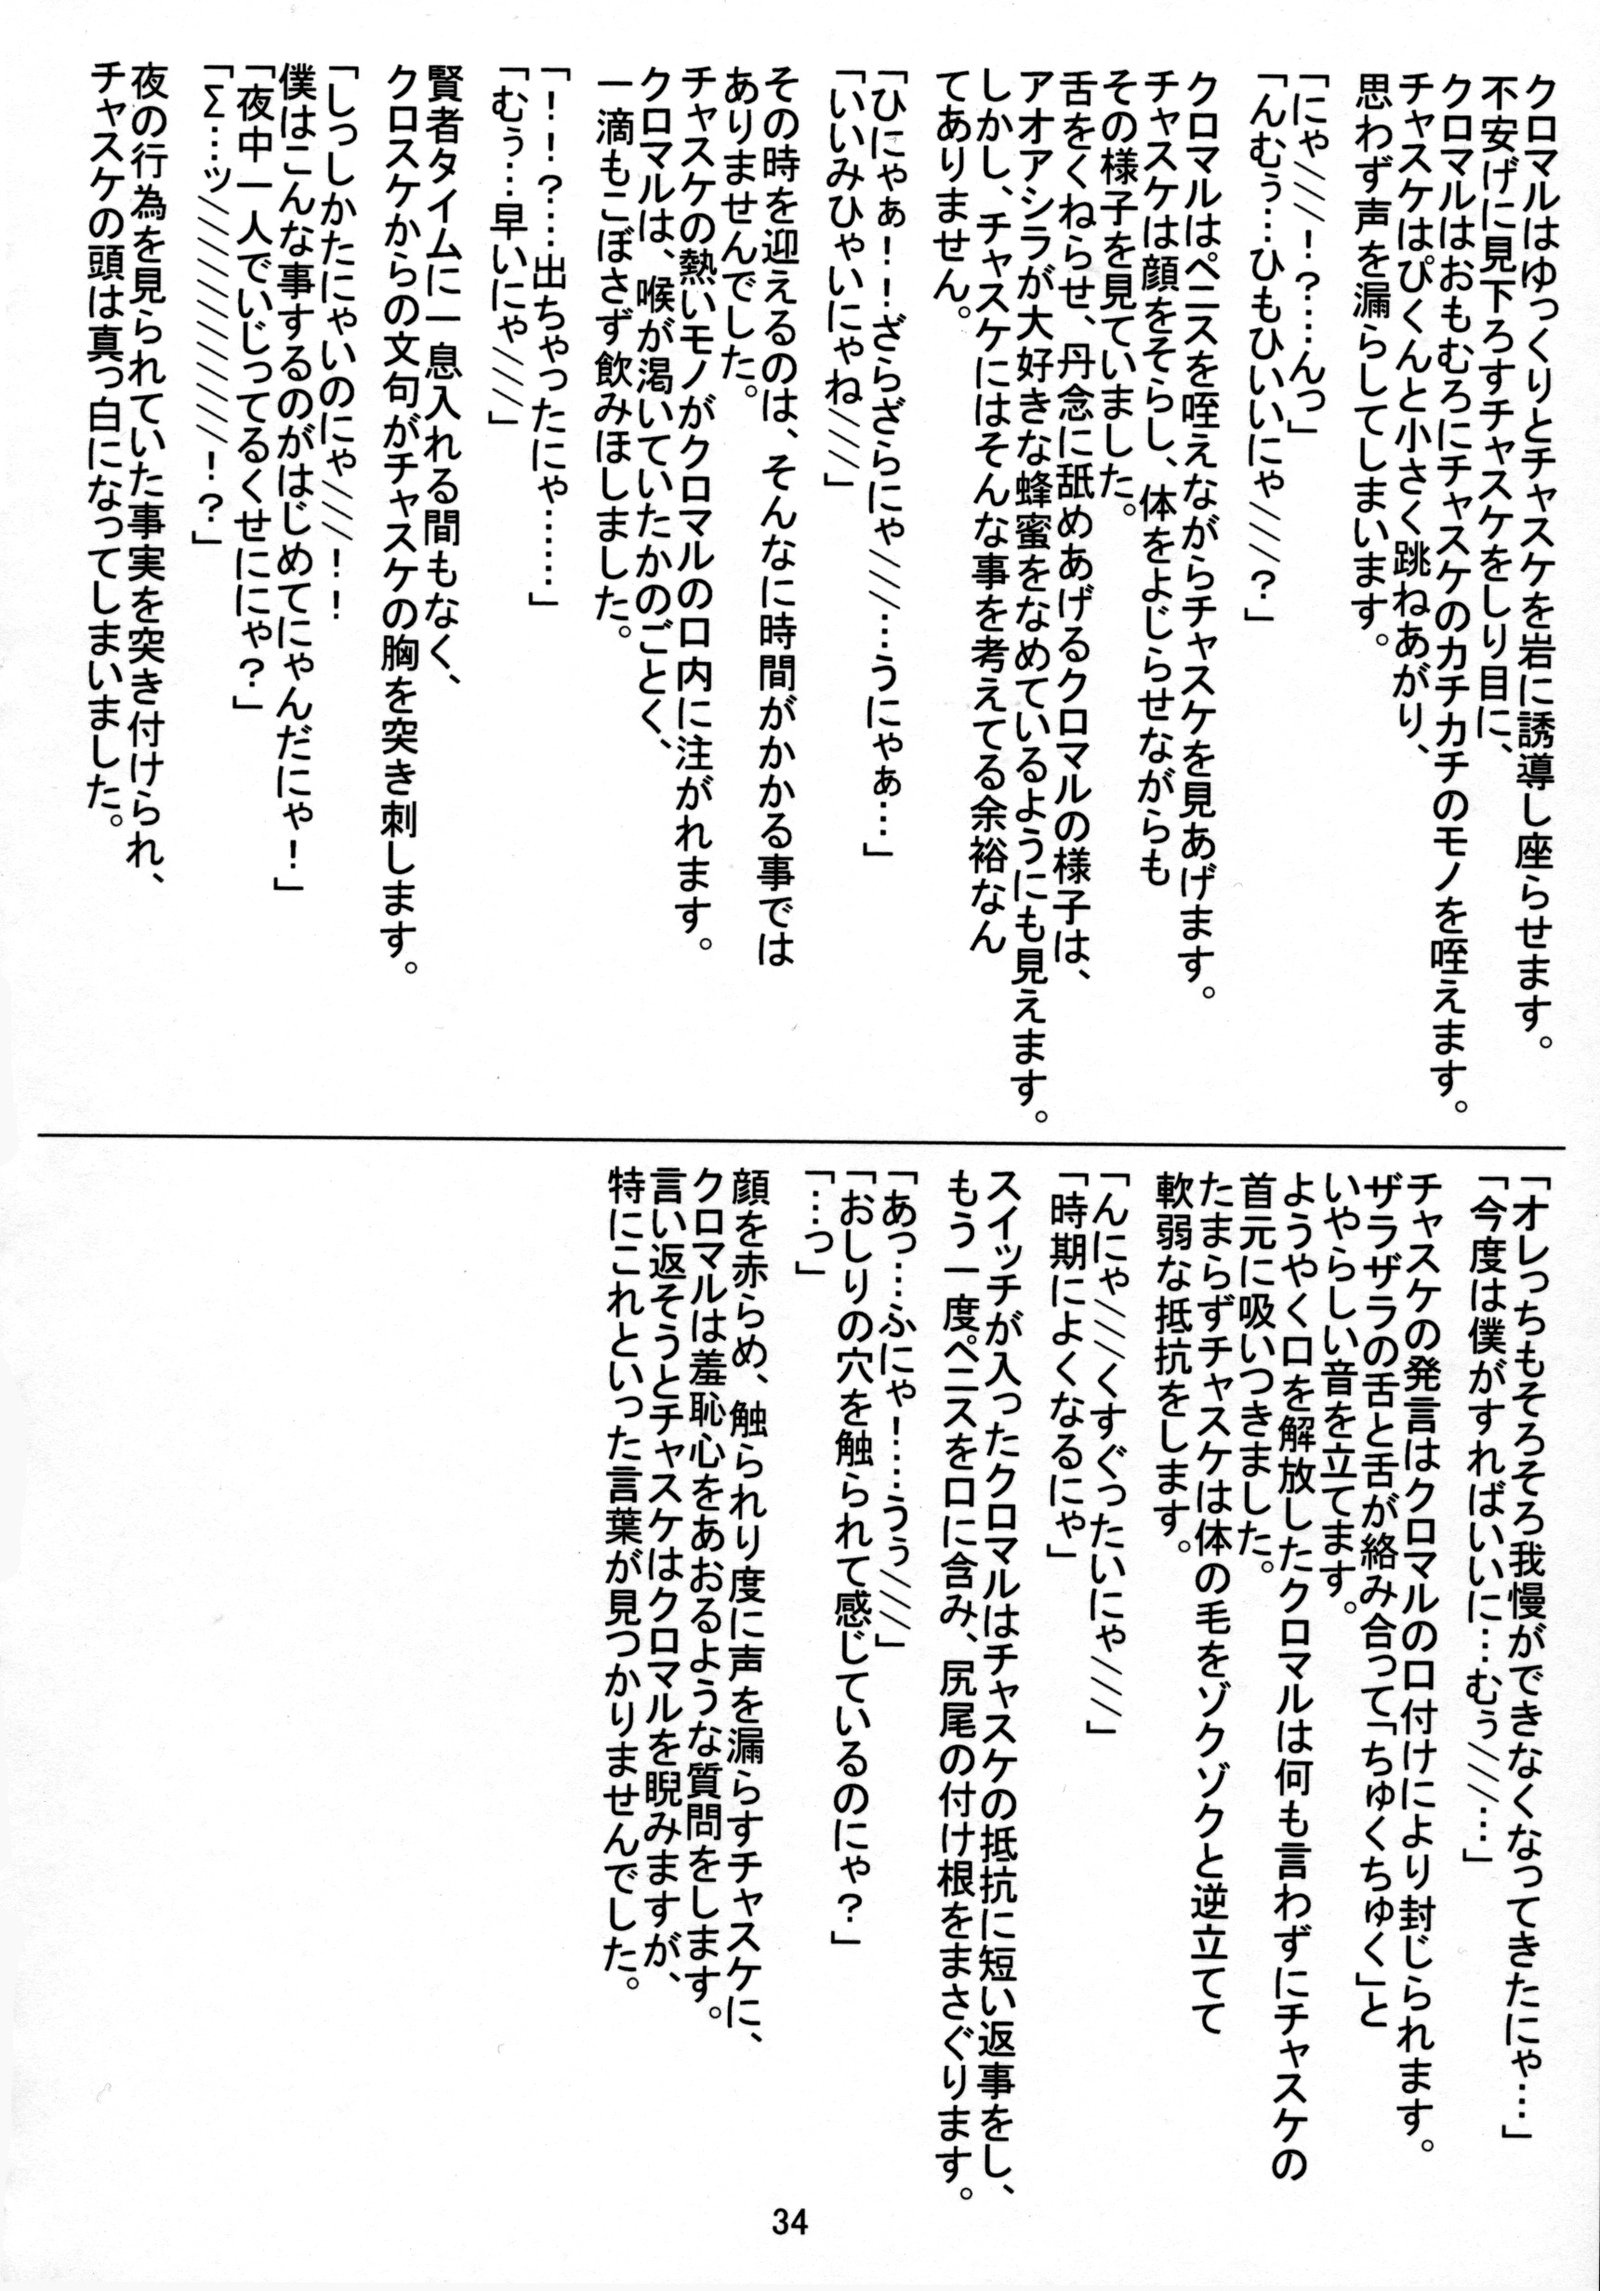 クロマルはゆっくりとチャスケを岩に誘導し座らせます。
不安げに見下ろすチャスケをしり目に、
クロマルはおもむろにチャスケのカチカチのモノを咥えます。
チャスケはぴくんと小さく跳ねあがり、
思わず声を漏らしてしまいます。
「にゃ///！？……んっ」
「んむぅ…ひもひいいにゃ///？」
クロマルはペニスを咥えながらチャスケを見あげます。
チャスケは顔をそらし、体をよじらせながらも
その様子を見ていました。
舌をくねらせ、丹念に舐めあげるクロマルの様子は、
アオアシラが大好きな蜂蜜をなめているようにも見えます。
しかし、チャスケにはそんな事を考えてる余裕なん
てありません。
「ひにゃぁ！！ざらざらにゃ///…うにゃぁ…」
「いいみひゃいにゃね///」
その時を迎えるのは、そんなに時間がかかる事では
ありませんでした。
チャスケの熱いモノがクロマルの口内に注がれます。
クロマルは、喉が渇いていたかのごとく、
一滴もこぼさず飲みほしました。
「！！？…出ちゃったにゃ……」
「むぅ…早いにゃ///」
賢者タイムに一息入れる間もなく、
クロスケからの文句がチャスケの胸を突き刺します。
「しっしかたにゃいのにゃ///！！
僕はこんな事するのがはじめてにゃんだにゃ！」
「夜中一人でいじってるくせににゃ？」
「Σ…ッ/////////！？」
夜の行為を見られていた事実を突き付けられ、
チャスケの頭は真っ白になってしまいました。
「オレっちもそろそろ我慢ができなくなってきたにゃ…」
「今度は僕がすればいいに…むぅ///…」
チャスケの発言はクロマルの口付けにより封じられます。
ザラザラの舌と舌が絡み合って「ちゅくちゅく」と
いやらしい音を立てます。
ようやく口を解放したクロマルは何も言わずにチャスケの
首元に吸いつきました。
たまらずチャスケは体の毛をゾクゾクと逆立てて
軟弱な抵抗をします。
「んにゃ///くすぐったいにゃ///」
「時期によくなるにゃ」
スイッチが入ったクロマルはチャスケの抵抗に短い返事をし、
もう一度ペニスを口に含み、尻尾の付け根をまさぐります。
「あっ…ふにゃ！……うぅ///」
「おしりの穴を触られて感じているのにゃ？」
「…っ」
顔を赤らめ、触られり度に声を漏らすチャスケに、
クロマルは羞恥心をあおるような質問をします。
言い返そうとチャスケはクロマルを睨みますが、
特にこれといった言葉が見つかりませんでした。
34